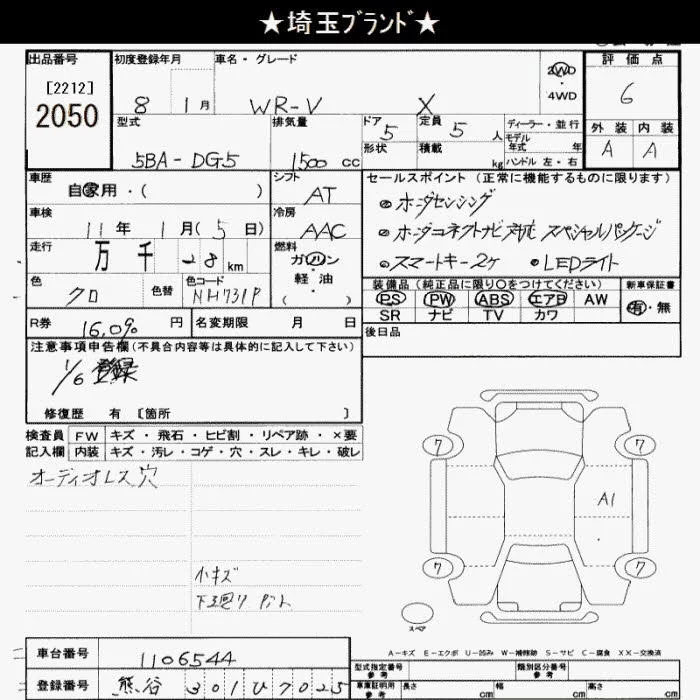 ★埼玉ブランド★
出品番号 初度登録年月 車名・グレード 2WD ・4WD 評価点
[2212] 2050 8 1月 WR-V X 6
型式 排気量 ドア 5 定員 5人 ディーラー・並行 外装 内装
5BA-DG5 1500cc 形状 積載 kg モデル年式 年 ハンドル 左・右 A A
車歴 自家用・( ) シフト AT セールスポイント(正常に機能するものに限ります)
車検 11年 1月(5日) 冷房 AAC ホンダセンシング
ホンダコネクトナビ対応 スペシャルパッケージ
走行 万 千 28km 燃料 ガソリン 軽油 ・( ) スマートキー2ケ ・LEDライト
色 クロ 色替 色コード NH731P 装備品(純正品に限り○をつけてください) 新車保証書
PS PW ABS エアB AW 有・無
SR ナビ TV カワ
R券 16,090円 名変期限 月 日 後日品
注意事項申告欄(不具合内容等は具体的に記入して下さい)
1/6 登録
修復歴 有 〔箇所 〕
検査員記入欄 FW キズ・飛石・ヒビ割・リペア跡・×要
内装 キズ・汚レ・コゲ・穴・スレ・キレ・破レ
オーディオレス穴
7 7
A1
7 7
小キズ
下廻り
スペア
A-キズ E-エクボ U-凹み W-補修跡 S-サビ C-腐食 XX-交換済
車台番号 1106544 型式指定番号 参考 類別区分番号 参考
登録番号 熊谷 301 ひ 7025 車庫証明用 参考 長さ cm 幅 cm 高さ cm